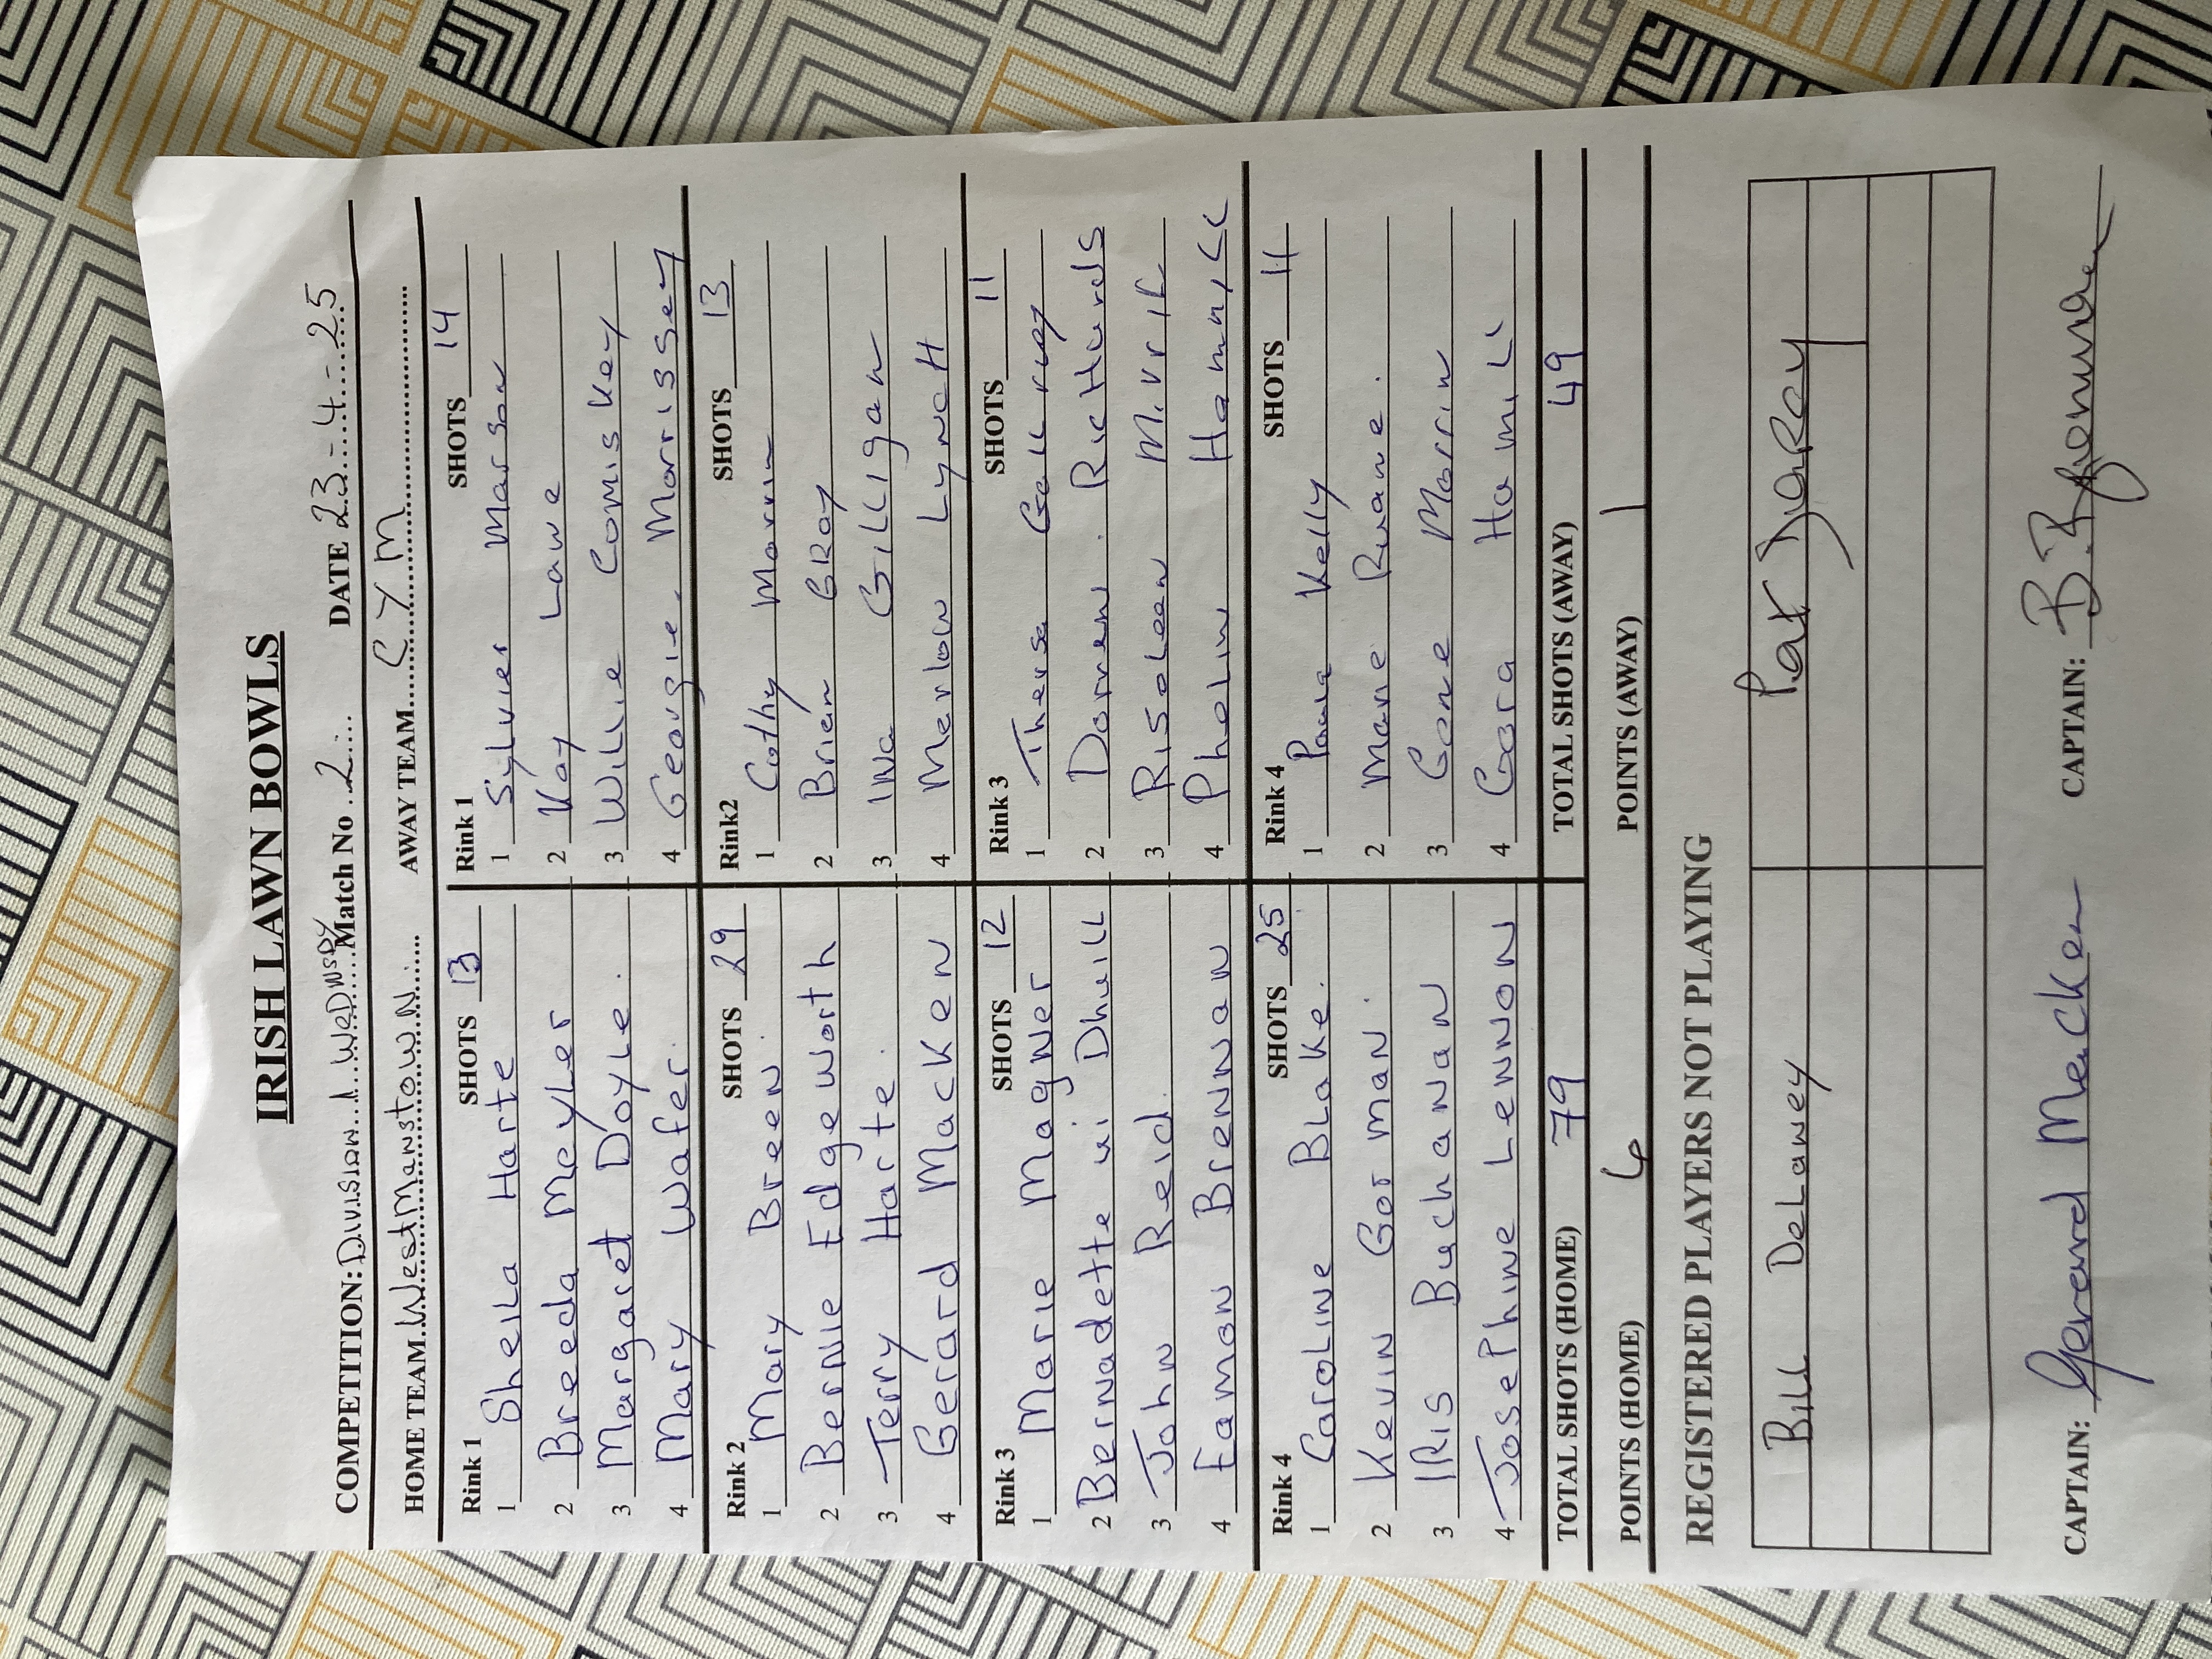 IRISH LAWN BOWLS
COMPETITION: Division 1 WeDNsDy Match No 2 DATE 23-4-25
HOME TEAM WestManstowN. AWAY TEAM C Y M
Rink 1 SHOTS 13 Rink 1 SHOTS 14
1 Sheila Harte 1 Sylvier Marson
2 Breeda Meyler 2 Kay Lawe
3 Margaret Doyle. 3 Willie Comiskey
4 Mary Wafer. 4 Georgie. Morrissey
Rink 2 SHOTS 29 Rink2 SHOTS 13
1 Mary Breen. 1 Cathy Morrin
2 Bernie Edgeworth 2 Brian GRay
3 Terry Harte. 3 INa Gilligan
4 Gerard Macken 4 Lynch
Rink 3 SHOTS 12 Rink 3 SHOTS 11
1 Marie Magner 1 Thersa
2 Bernadette ui Dhuill 2 Richards
3 John Reid. 3 Risoleen
4 Eamon Brennan 4 Phelim
Rink 4 SHOTS 25 Rink 4 SHOTS 11
1 Caroline Blake. 1 Paula Kelly
2 Kevin Gorman. 2 Marie Ruane.
3 IRIS Buchanan 3 Gene Morrin
4 Josephine Lennon 4 Cora Hamill
TOTAL SHOTS (HOME) 79 TOTAL SHOTS (AWAY) 49
POINTS (HOME) 6 POINTS (AWAY) 1
REGISTERED PLAYERS NOT PLAYING
Bill DeLaney Pat Darcy
CAPTAIN: Gerard Macken CAPTAIN: B